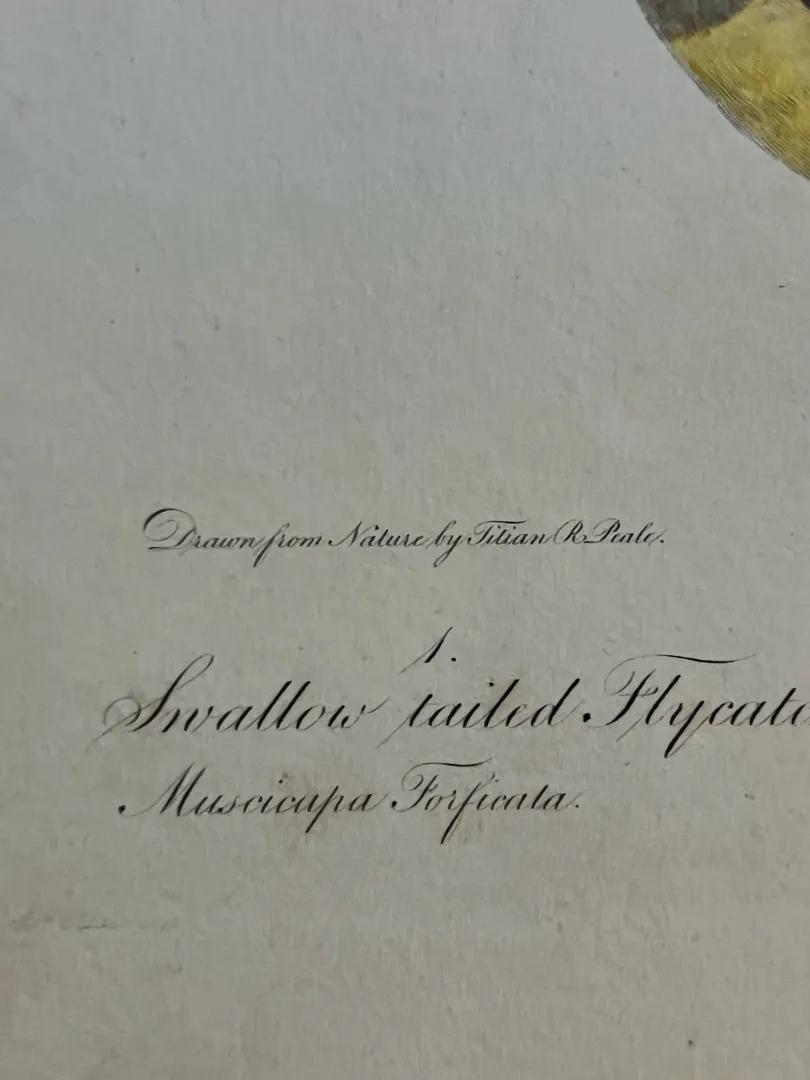 Drawn from Nature by Titian R. Peale.
1.
Swallow tailed Flycatc
Muscicapa Forficata.